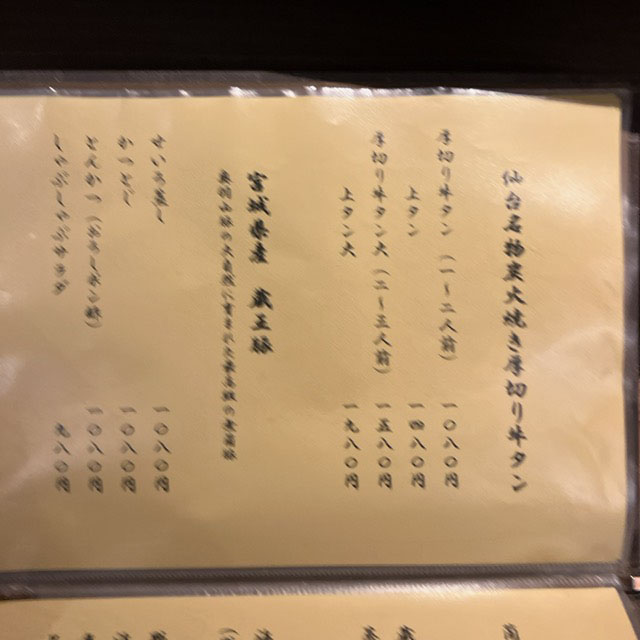 仙台名物炭火焼き厚切り牛タン
厚切り牛タン（一～二人前） 一〇八〇円
上タン 一四八〇円
厚切り牛タン大（二～三人前） 一五八〇円
上タン大 一九八〇円
宮城県産 蔵王豚
せいろ蒸し 一〇八〇円
かつとじ 一〇八〇円
とんかつ（おろしポン酢） 一〇八〇円
しゃぶしゃぶサラダ 九八〇円